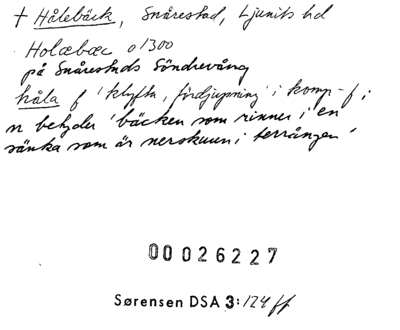 † Hålebäck, Snårestad, Ljunits hd
Holæbæc o1300
på Snårestads Söndrevång
håla f 'klyfta, fördjupning' i komp-f;
n betyder 'bäcken som rinner i en
sänka som är nerskuren i terrängen'
00026227
Sørensen DSA 3: 124 ff